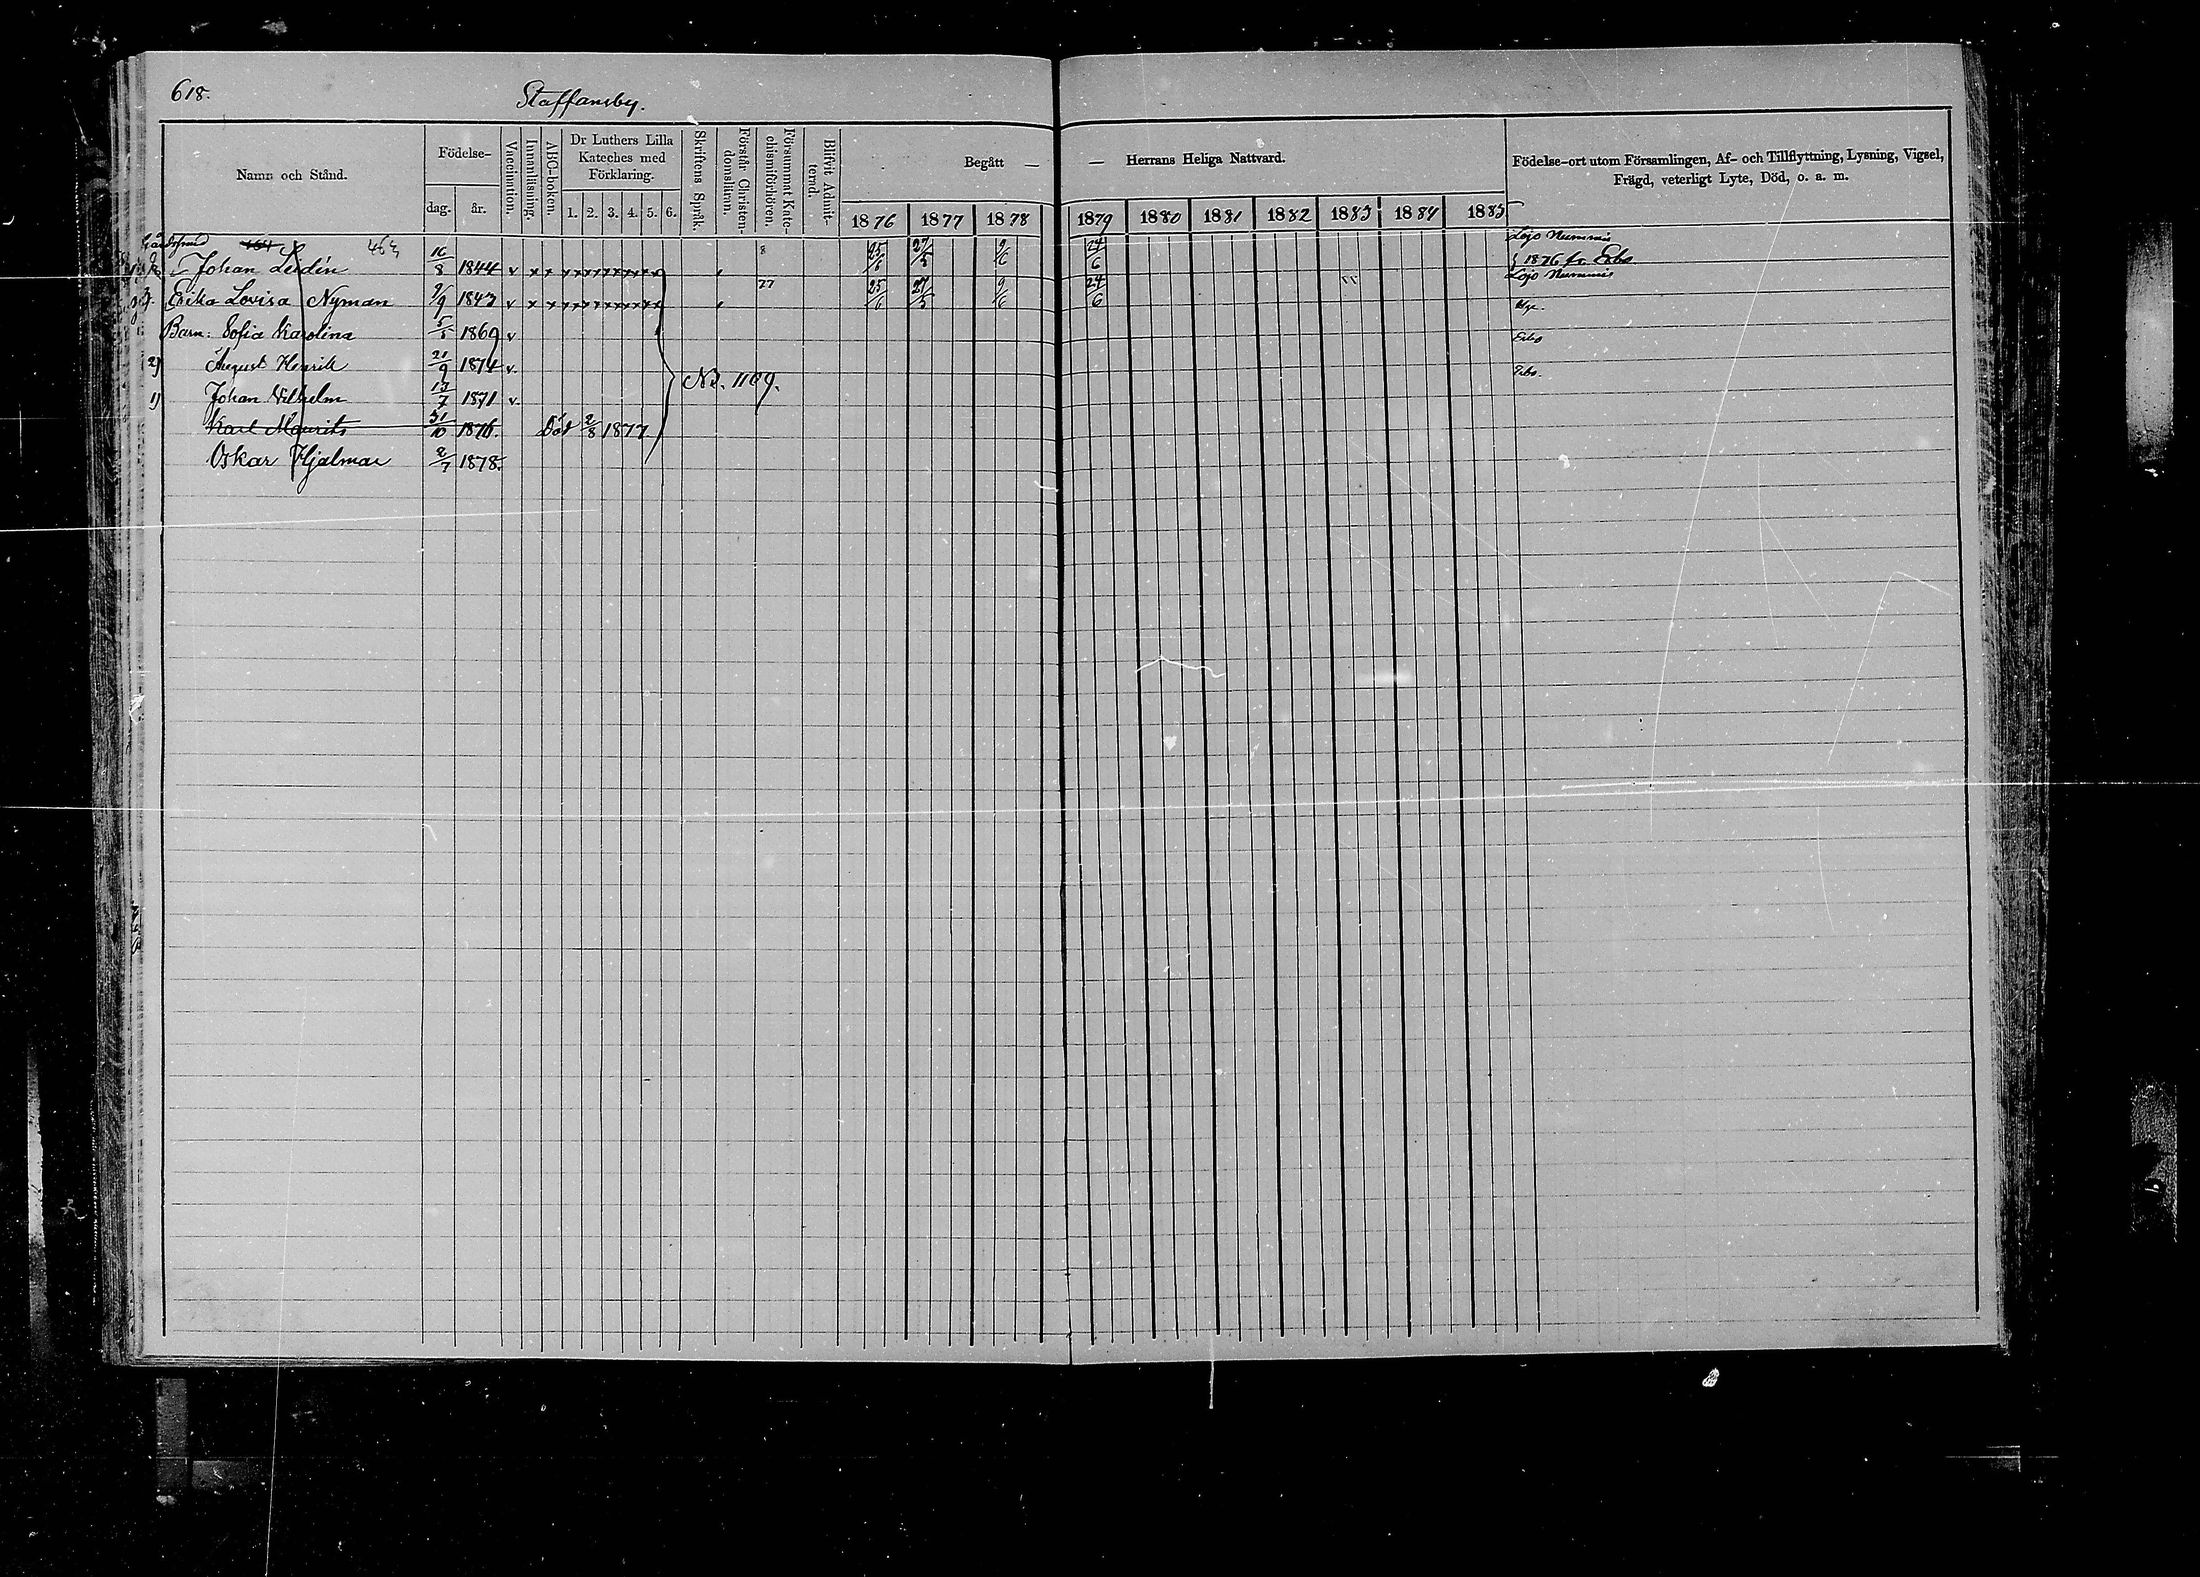 618.
Staffansby.
Namn och Stånd.
Födelse-
dag. år.
Vaccination.
Innanläsning.
ABC-boken.
Dr Luthers Lilla
Kateches med
Förklaring.
1. 2. 3. 4. 5. 6.
Skriftens Språk.
Förstår Christen-
domslärau.
Försummat Kate-
chismiförhören.
Blifvit Admit-
terad.
Begått — — Herrans Heliga Nattvard.
1876 1877 1878 1879 1880 1881 1882 1883 1884 1885
Födelse-ort utom Församlingen, Af- och Tillflyttning, Lysning, Vigsel,
Frägd, veterligt Lyte, Död, o. a. m.
464 463 8 Lojo Nummis
Johan Lindén 16/8 1844 v x x 25/6 27/5 9/6 24/6 1876 fr. Esbo
77 Lojo Nummis
Erika Lovisa Nyman 9/9 1847 v x x 25/6 27/5 9/6 24/6
Barn: Sofia Karolina 1869 v
Esbo
2) August Henrik 21/9 1874 v.
No. 1109.
1) Johan Vilhelm 13/7 1871 v.
Karl Maurits 31/10 1876. Död 2/8 1877
Oskar Hjalmar 2/7 1878.